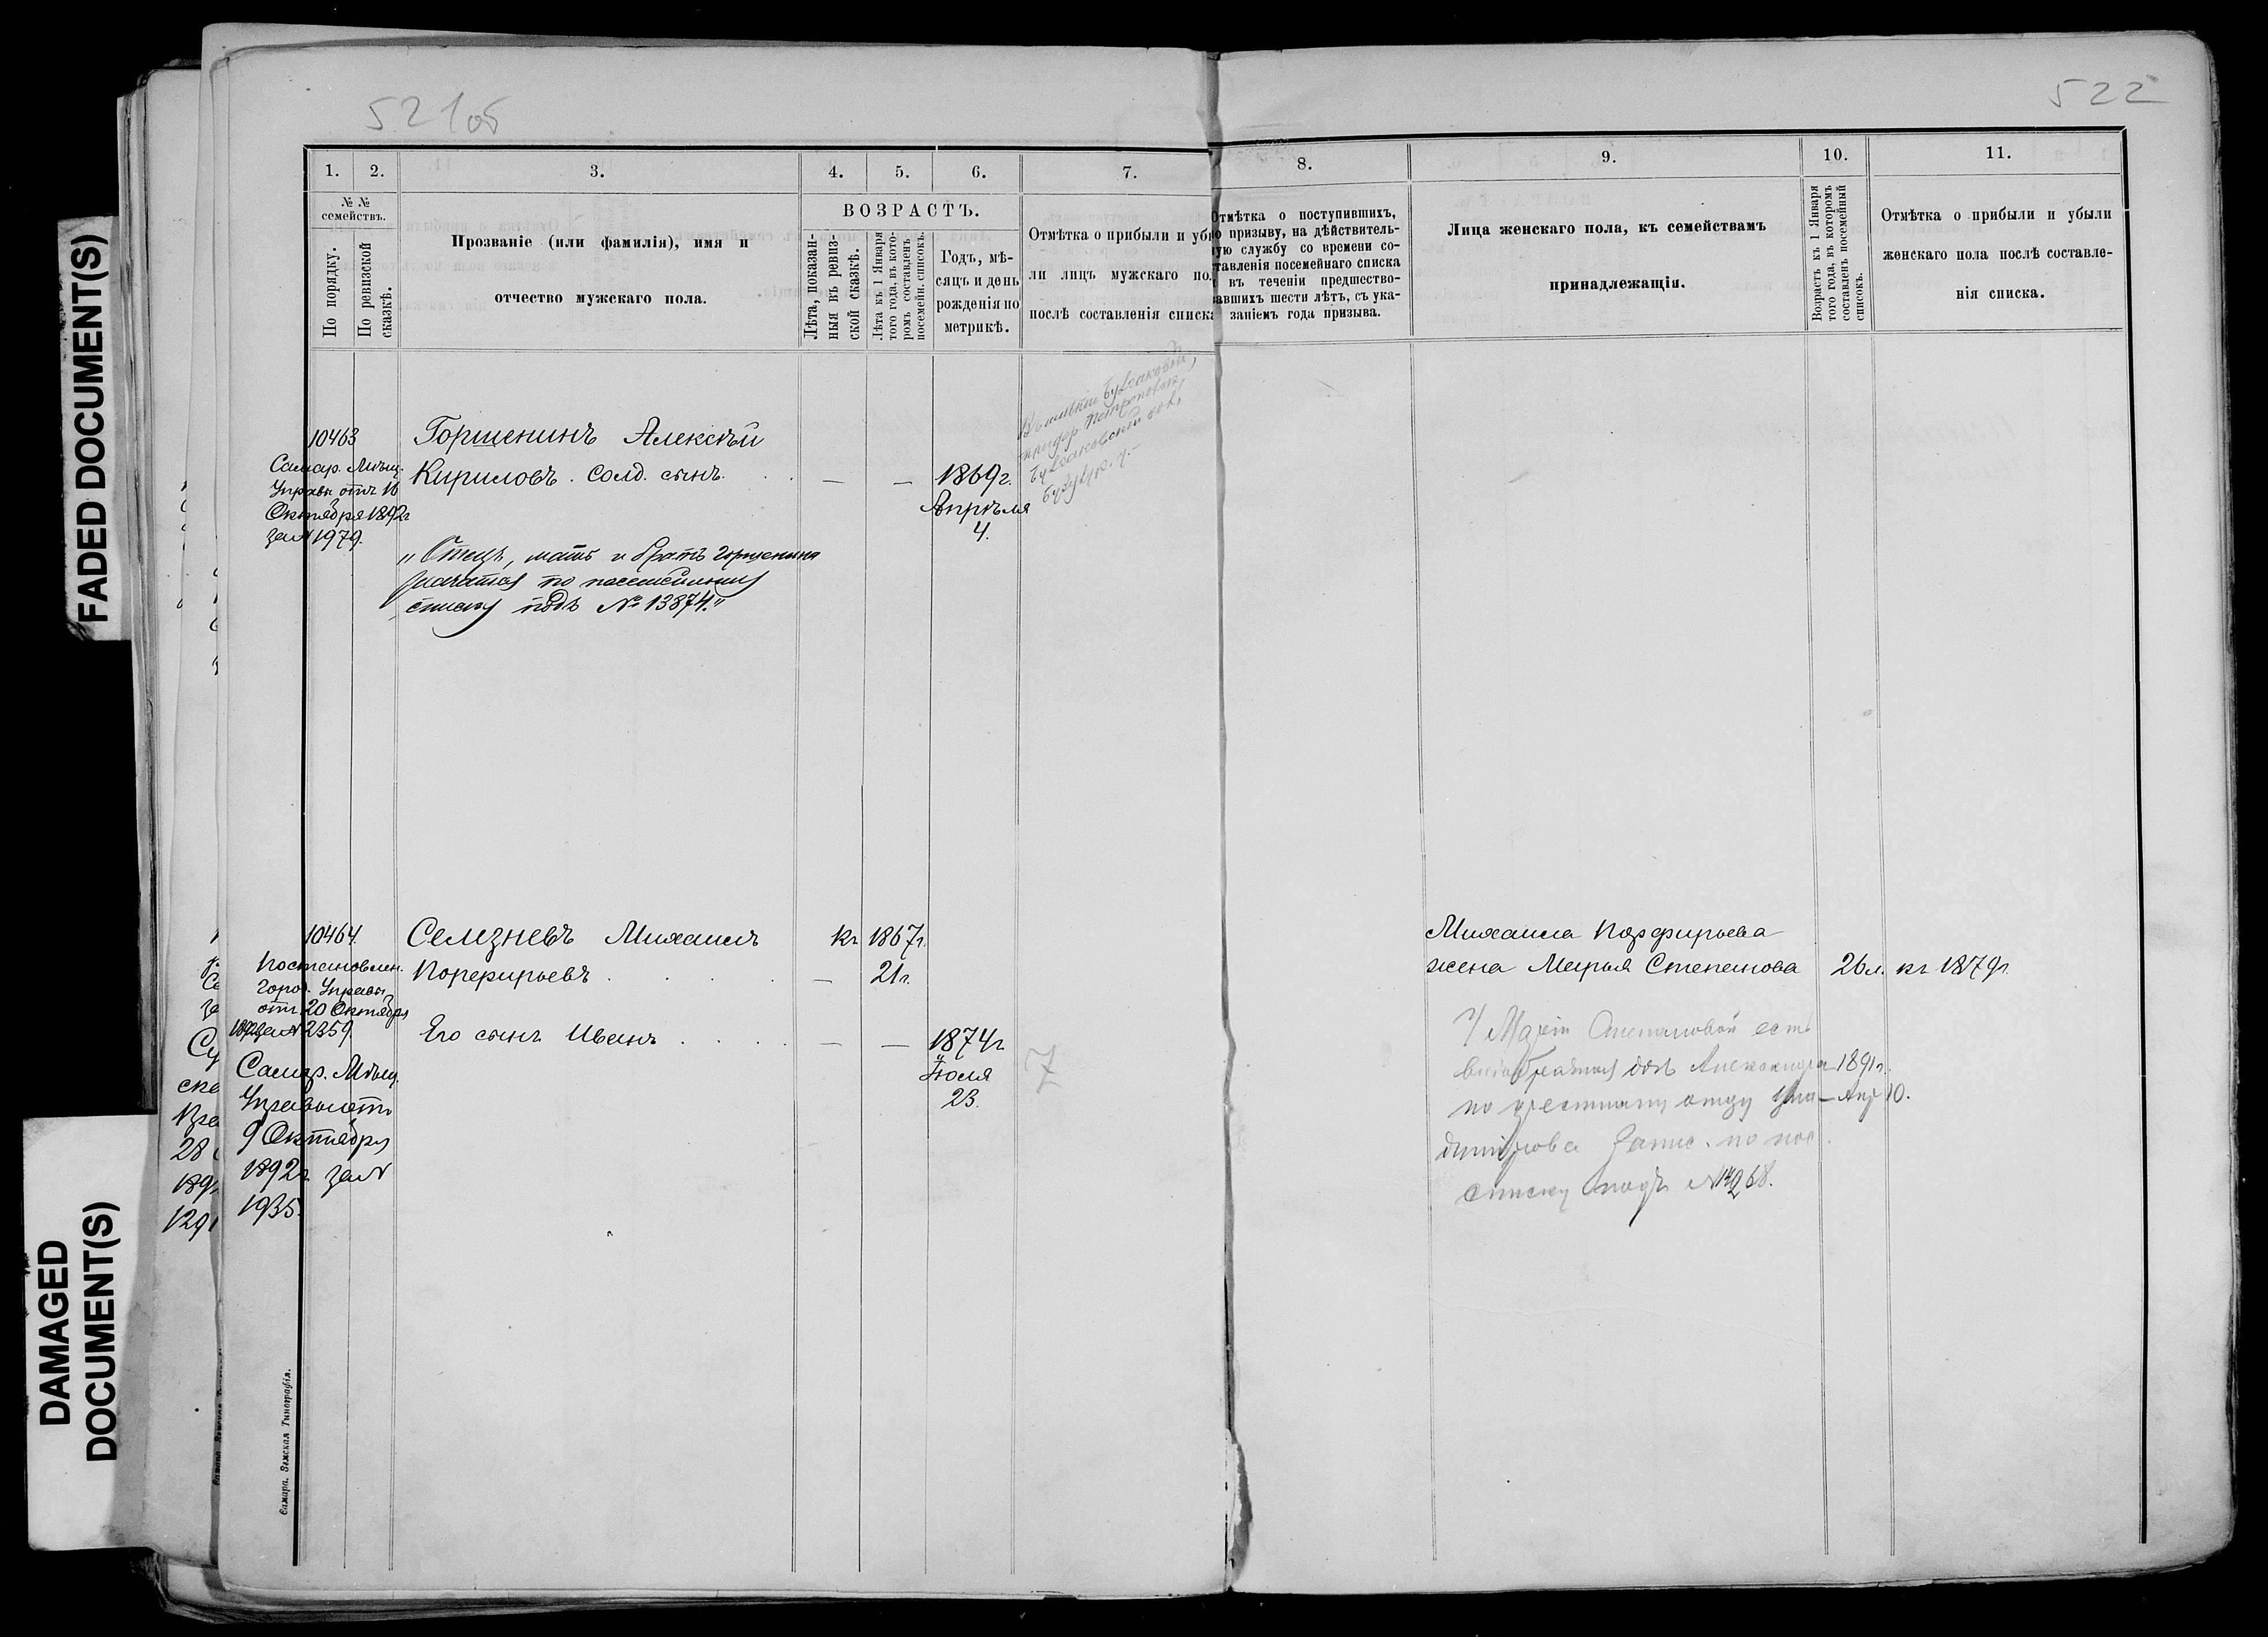 FADED DOCUMENT(S)
DAMAGED
DOCUMENT(S)
521об
522
1. 2. 3. 4. 5. 6. 7. 8. 9. 10. 11.
№ №
семействъ.
По порядку.
По ревизской
сказкѣ.
Прозваніе (или фамилія), имя и
отчество мужскаго пола.
ВОЗРАСТЪ.
Лѣта, показан-
ныя въ ревиз-
ской сказкѣ.
Лѣта къ 1 Января
того года, въ кото-
ромъ составленъ
посемейн. списокъ.
Годъ, мѣ-
сяцъ и день
рожденія по
метрикѣ.
Отмѣтка о прибыли и убы
ли лицъ мужскаго по
послѣ составленія списка
Отмѣтка о поступившихъ,
о призыву, на дѣйствитель-
ую службу со времени со-
тавленія посемейнаго списка
въ теченіи предшество-
авшихъ шести лѣтъ, съ ука-
заніемъ года призыва.
Лица женскаго пола, къ семействамъ
принадлежащія.
Возрастъ къ 1 Января
того года, въ которомъ
составленъ посемейный
списокъ.
Отмѣтка о прибыли и убыли
женскаго пола послѣ составле-
нія списка.
10463
Самар. Мѣщ.
Управы отъ 16
Октября 1892г
за № 1979.
Горшенинъ Алексѣй
Кириловъ. Солд. сынъ. — — 1869г.
Апрѣля
4.
„Отецъ, мать и братъ Горшенина
значатся по посемейному
списку подъ № 13874."
10464.
Постановлен.
Город. Управы
отъ 20 Октября
1892 за № 2359.
Самар. Мѣщ.
Управы отъ
9 Октября
1892г. за №
1935.
Селезневъ Михаилъ къ 1867г.
Порфирьевъ — 21г.
Его сынъ Иванъ — — 1874г
Іюля
23.
7
Михаила Порфирьева
жена Марья Степанова 26л. къ 1879г.
У Маріи Степановой есть
дочь Александра 1891г.
по крестному отцу Апр 10.
Запис. по пос.
списку подъ № 14268.
Самара. Земская Типографія.